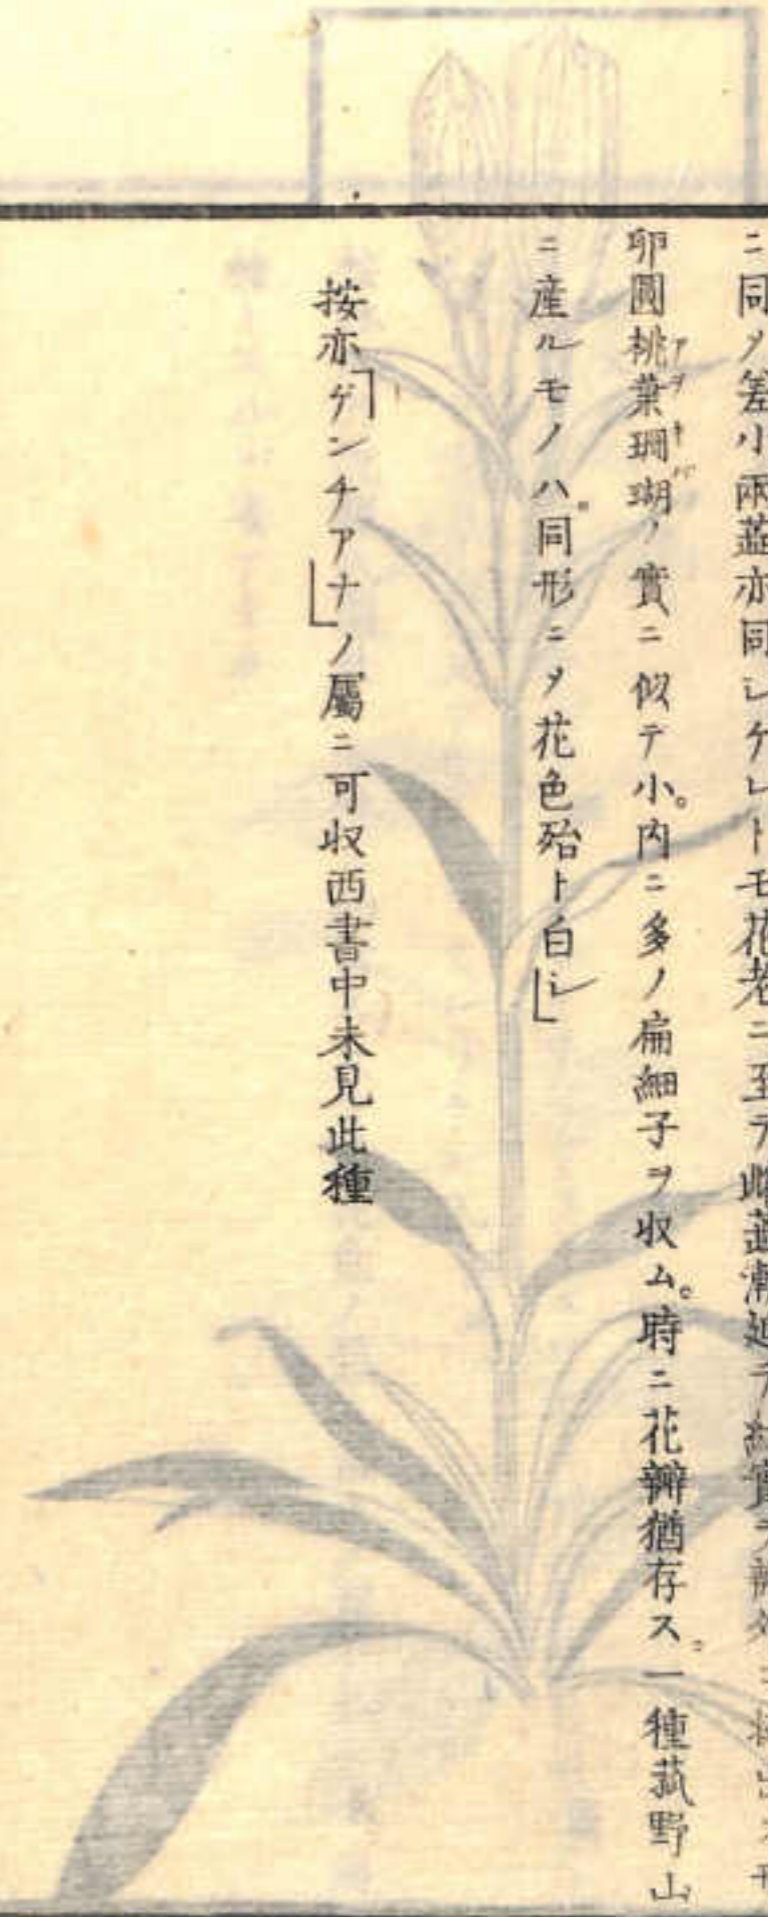 ニ同メ差小兩蕋亦同シケレトモ花老ニ至テ雌蕋漸延テ
卵圓桃葉珊瑚ノ實ニ似テ小。内ニ多ノ扁細子ヲ収ム。時ニ花瓣猶存ス。一種菰野山
アヲキバ
ニ産ルモノハ。同形ニメ花色殆ト白シ」
按亦「ゲンチアナ」ノ屬ニ可収西書中未見此種